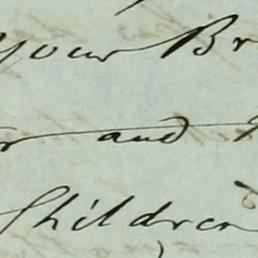 your Br
and
Children